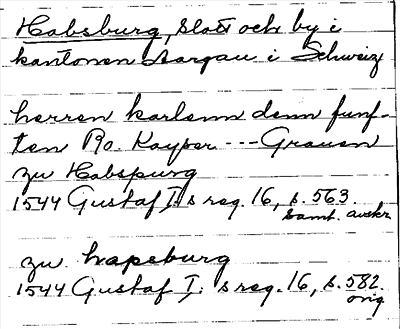 Habsburg, slott och by i
kantonen Aargau i Schweiz
herren karlenn denn funf-
ten Ro. Kayser --- Grauen
zu Habspurg
1544 Gustaf I:s reg. 16, s. 563.
samt. avskr
zu hapsburg
1544 Gustaf I:s reg. 16, s. 582.
orig